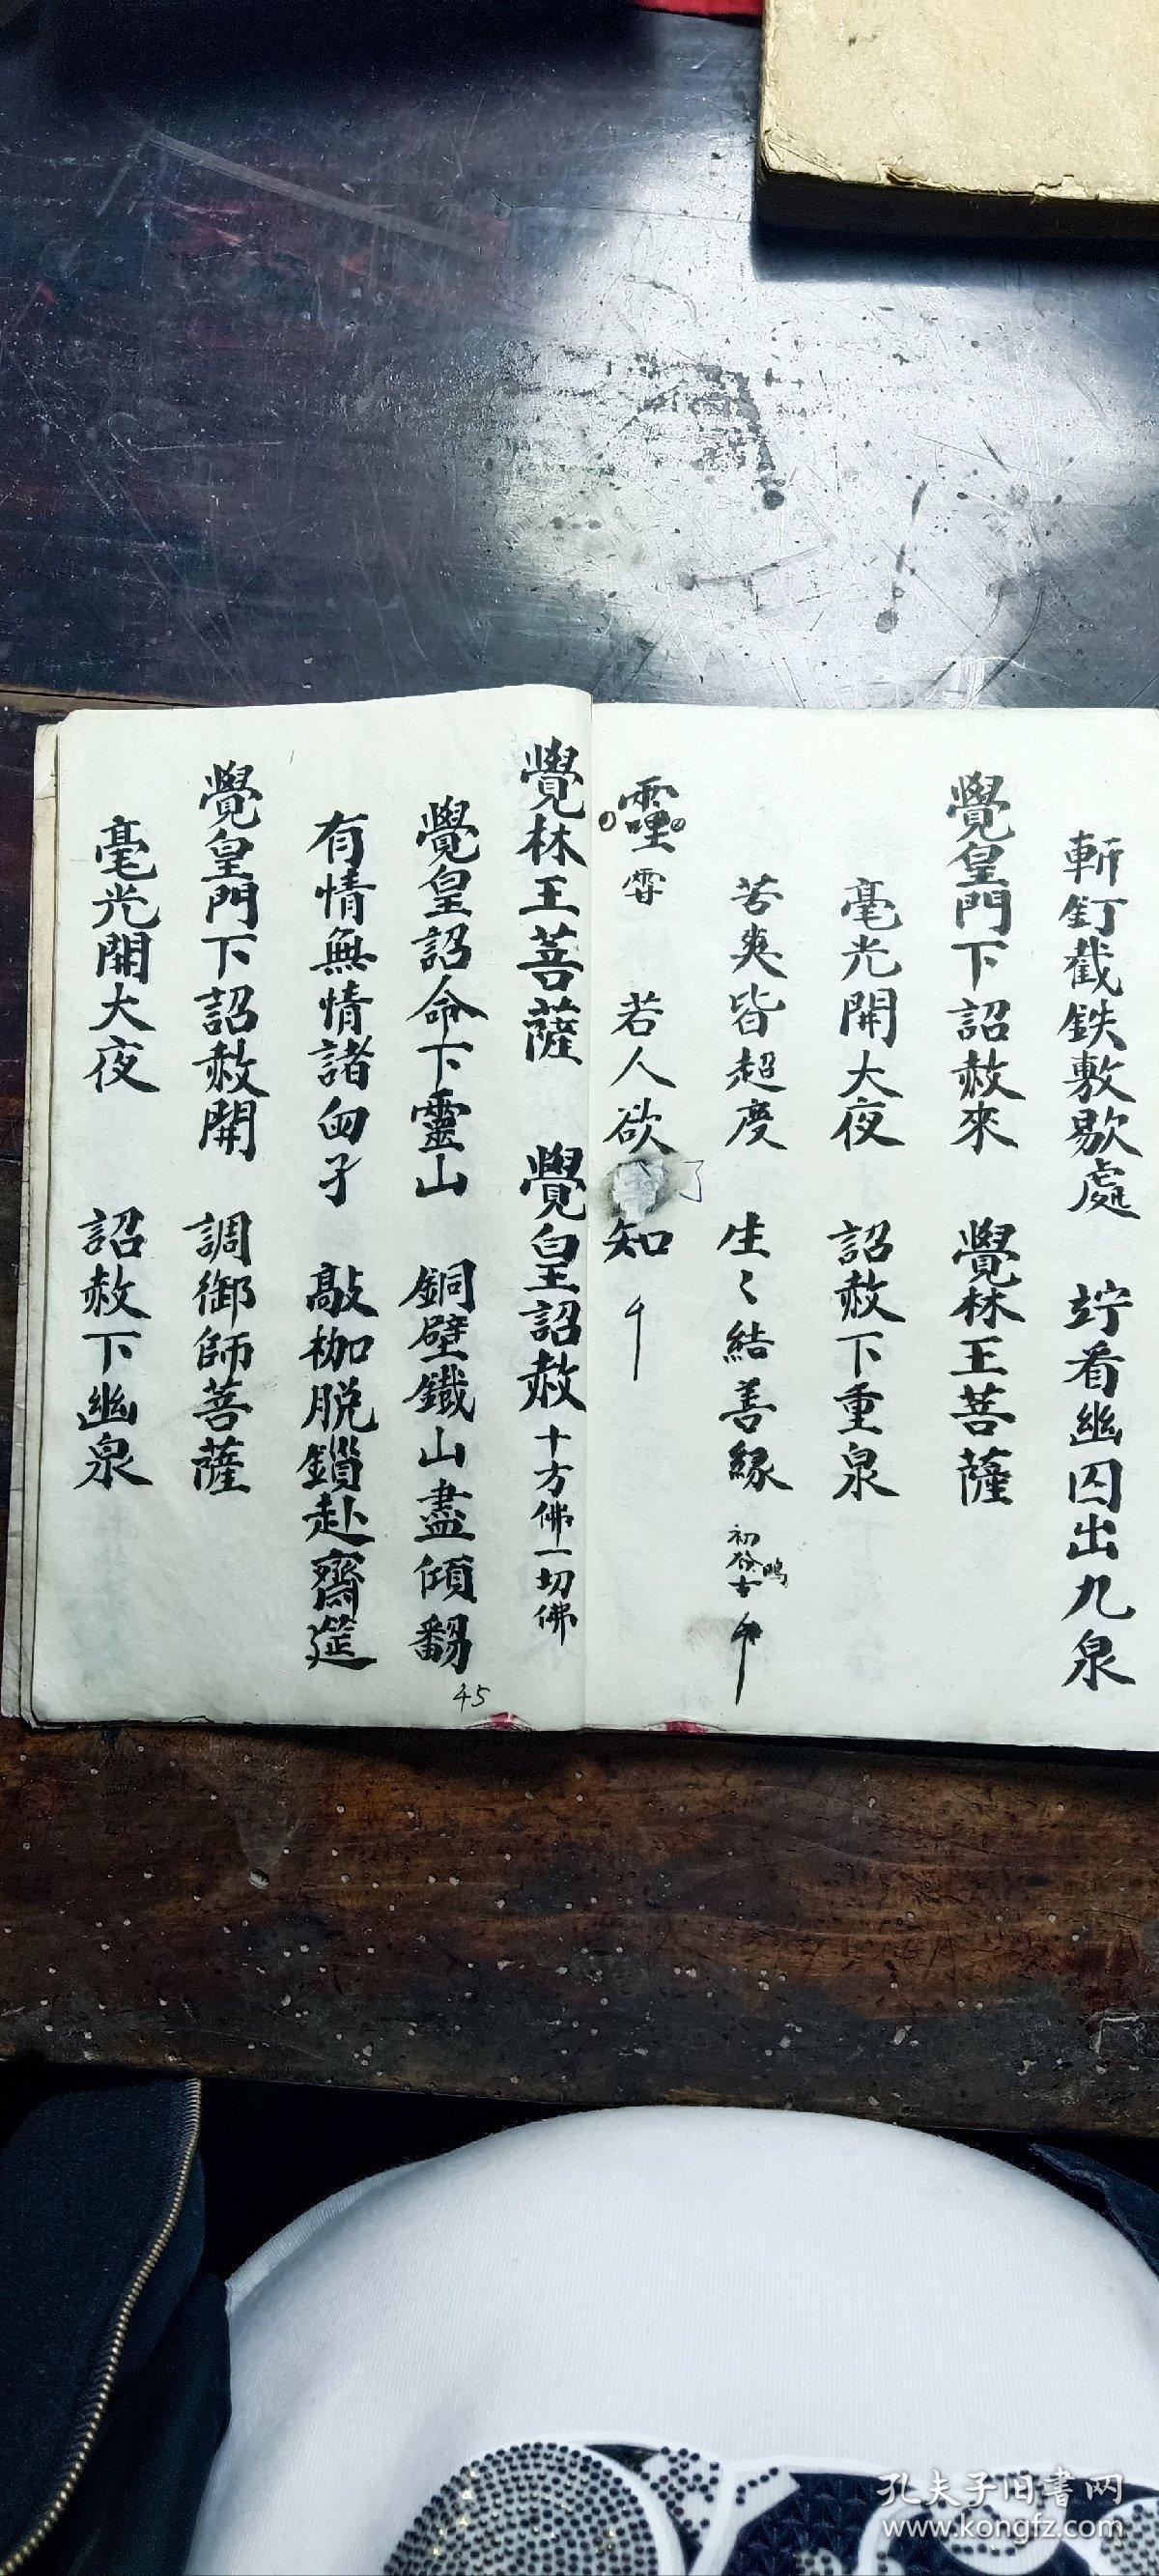 斬釘截鉄敷歇處　竚看幽囚出九泉
覺皇門下詔赦來　覺林王菩薩
毫光開大夜　詔赦下重泉
苦爽皆超度　生〻結善緣
靈　若人欲了知
覺林王菩薩　覺皇詔赦十方佛一切佛
覺皇詔命下靈山　銅壁鐵山盡傾翻
有情無情諸　敲枷脱鎖赴齋筵
覺皇門下詔赦開　調御師菩薩
毫光開大夜　詔赦下幽泉
45
孔夫子旧书网
www.kongfz.com